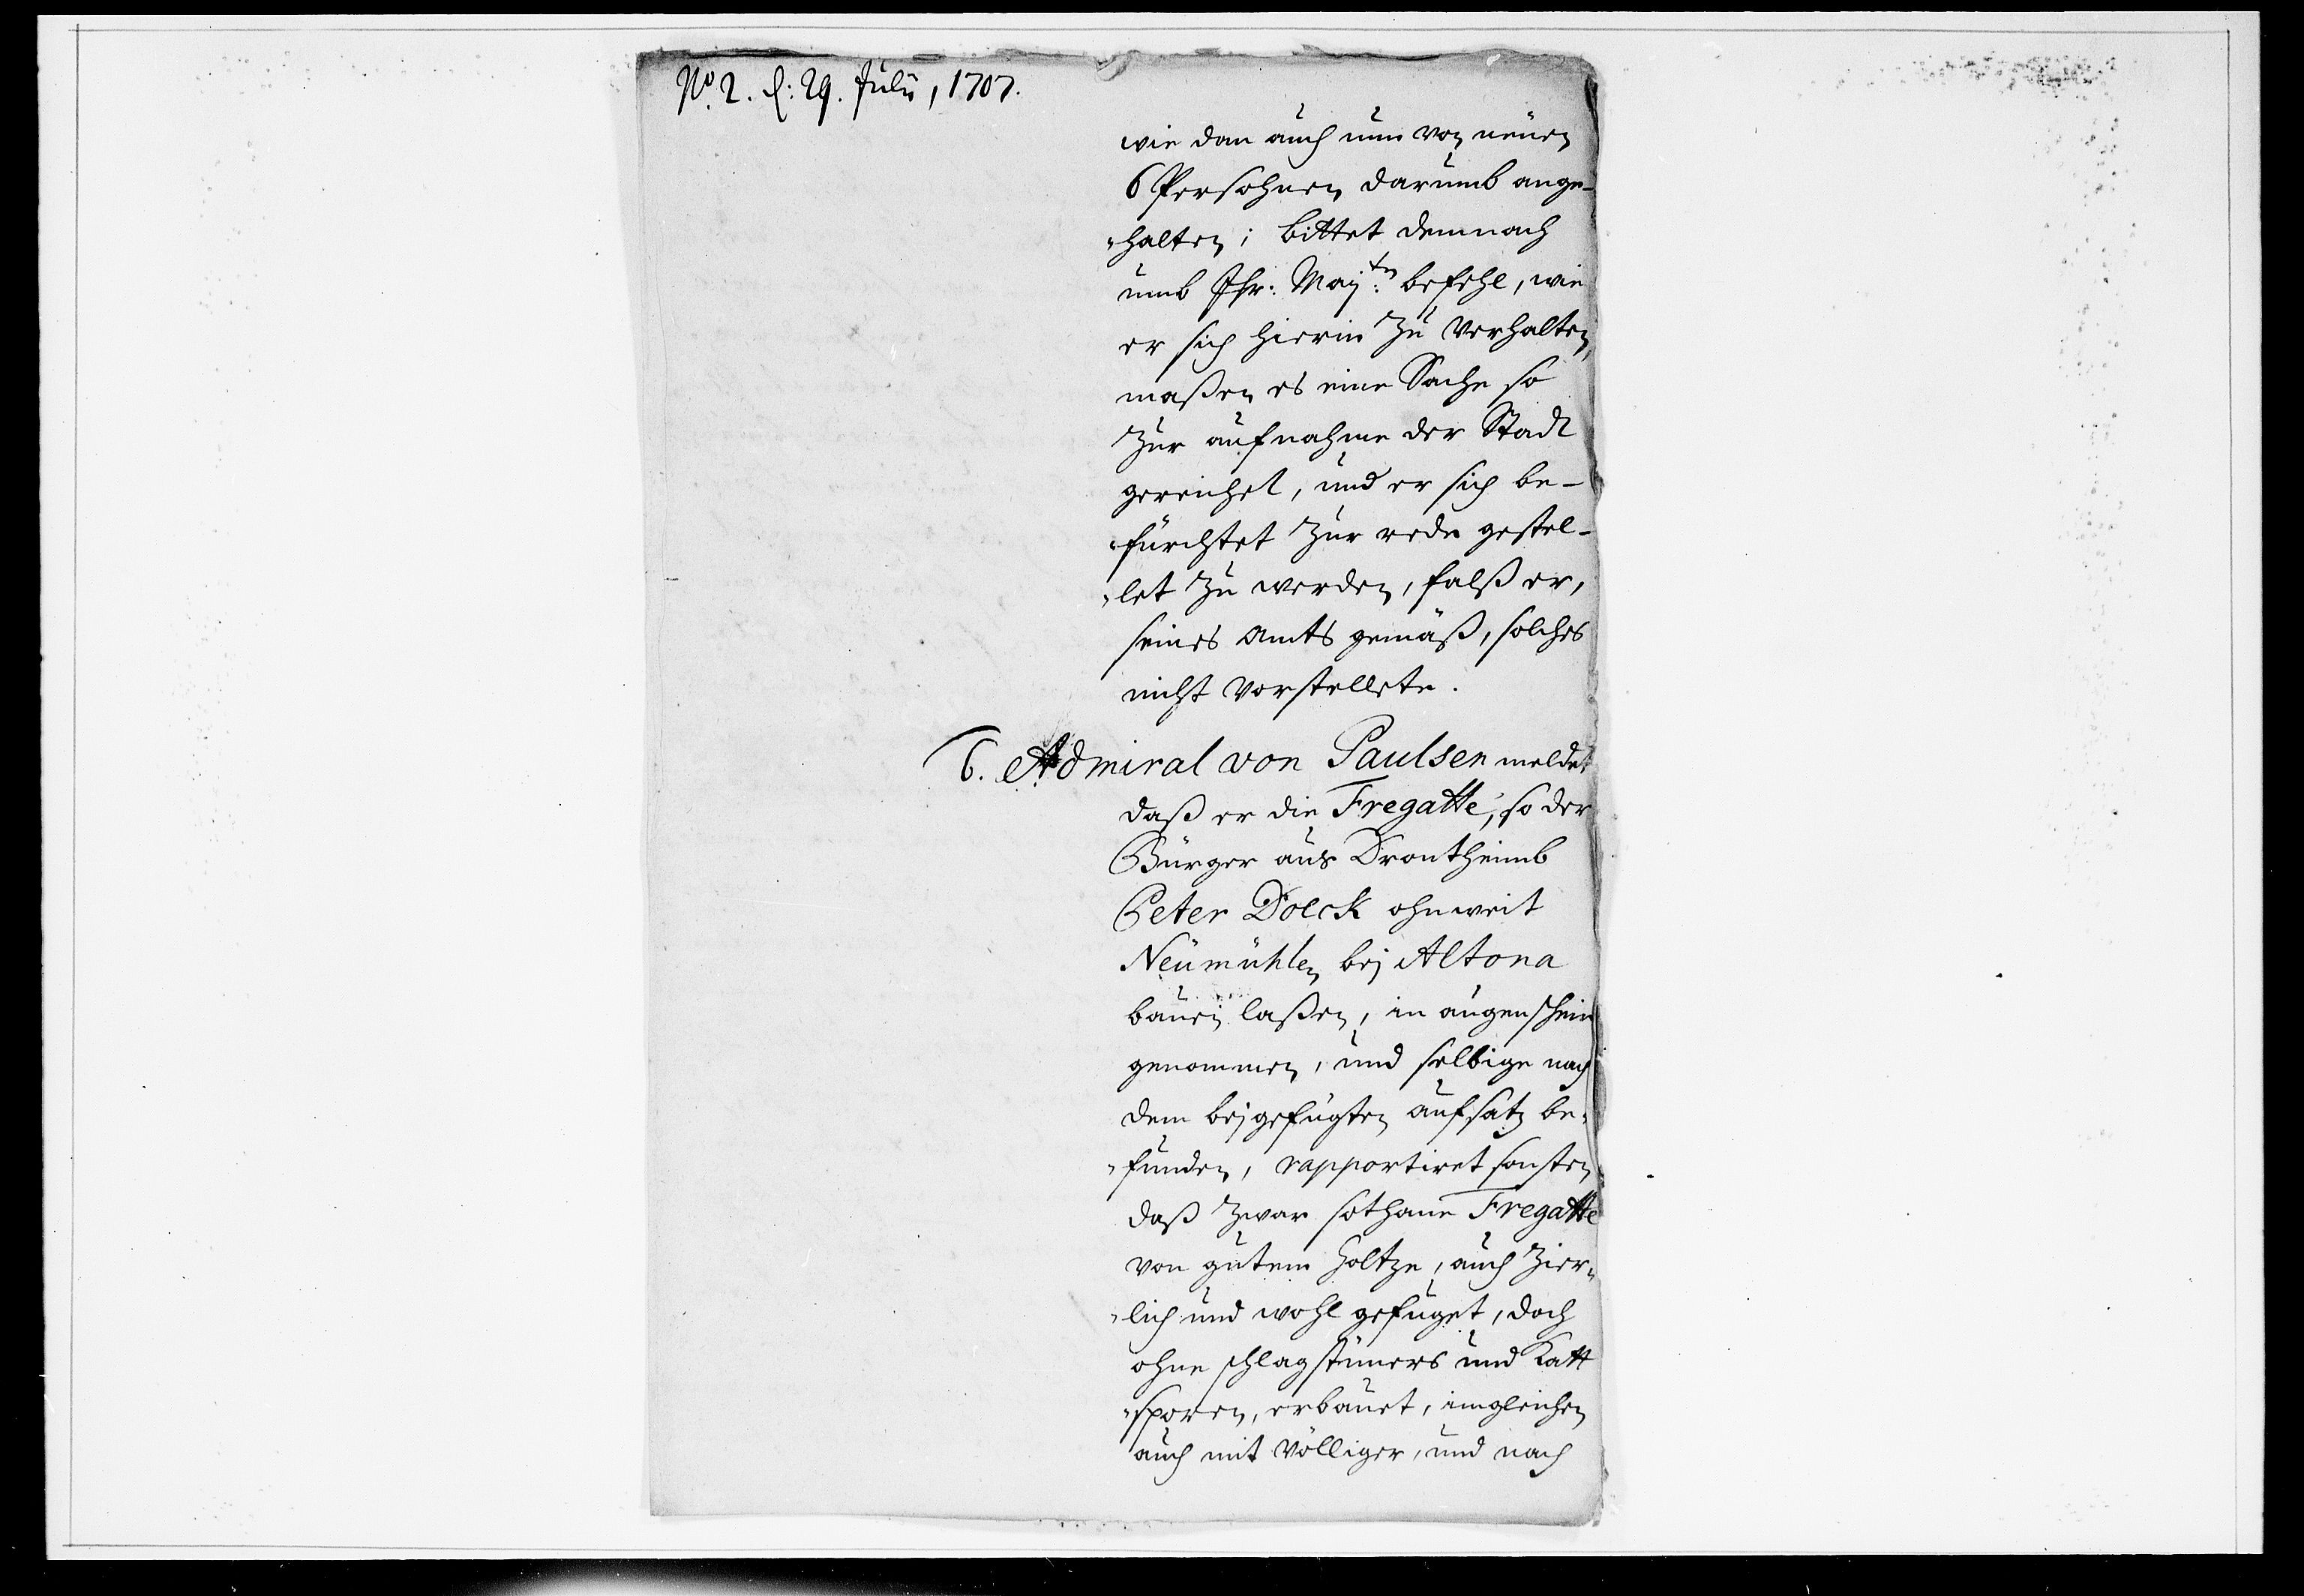 No. 2. d: 29. Julii, 1707.
wie dan auch nun von neuen
6 Persohnen darumb ange-
halten; bittet demnach
umb Ihr: Maj:tn befehl, wie
er sich hierin zu verhalten,
maßen es eine Sache so
zur aufnahme der Stadt
gereichet, und er sich be-
fürchtet zur rede gestel-
let zu werden, falß er,
seines Amts gemäß, solches
nicht vorstellete.
6. Admiral von Paulsen meldet
daß er die Fregatte, so der
Bürger aus Drontheimb
Peter Dolck ohnweit
Neümühlen bej Altona
bauen laßen, in augenschein
genommen, und selbige nach
dem bejgefügten aufsatz be-
funden, rapportiret sonsten
daß zwar sothane Fregatte
von gutem Holtze, auch zier-
lich und wohl gefüget, doch
ohne schlagstüners und Katt
sporen, erbauet, imgleichen
auch mit völliger, und nach